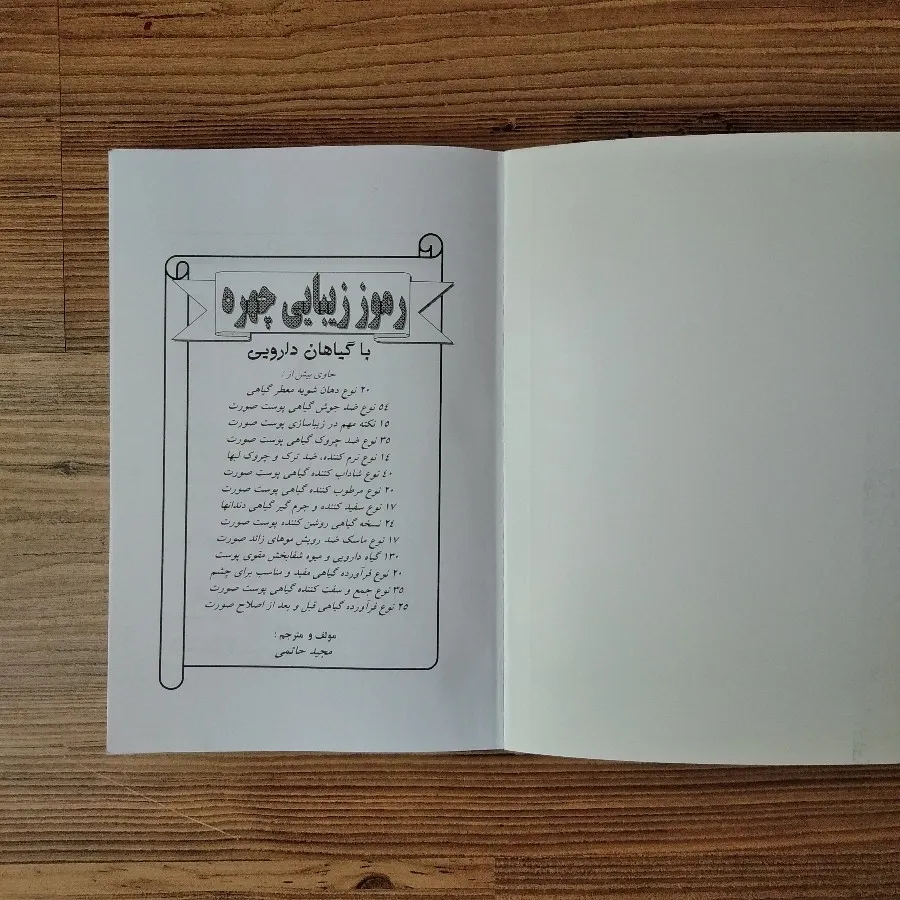 رموز زیبایی چهره
با گیاهان دارویی
حاوی بیش از :
۲۰ نوع دهان شویه معطر گیاهی
۵٤ نوع ضد جوش گیاهی پوست صورت
۱۵ نکته مهم در زیباسازی پوست صورت
۳۵ نوع ضد چروک گیاهی پوست صورت
۱٤ نوع نرم کننده، ضد ترک و چروک لبها
٤۰ نوع شاداب کننده گیاهی پوست صورت
۲۰ نوع مرطوب کننده گیاهی پوست صورت
۱۷ نوع سفید کننده و جرم گیر گیاهی دندانها
۲٤ نسخه گیاهی روشن کننده پوست صورت
۱۷ نوع ماسک ضد رویش موهای زائد صورت
۱۳۰ گیاه دارویی و میوه شفابخش مقوی پوست
۲۰ نوع فرآورده گیاهی مفید و مناسب برای چشم
۳۵ نوع جمع و سفت کننده گیاهی پوست صورت
۲۵ نوع فرآورده گیاهی قبل و بعد از اصلاح صورت
مولف و مترجم :
مجید حاتمی